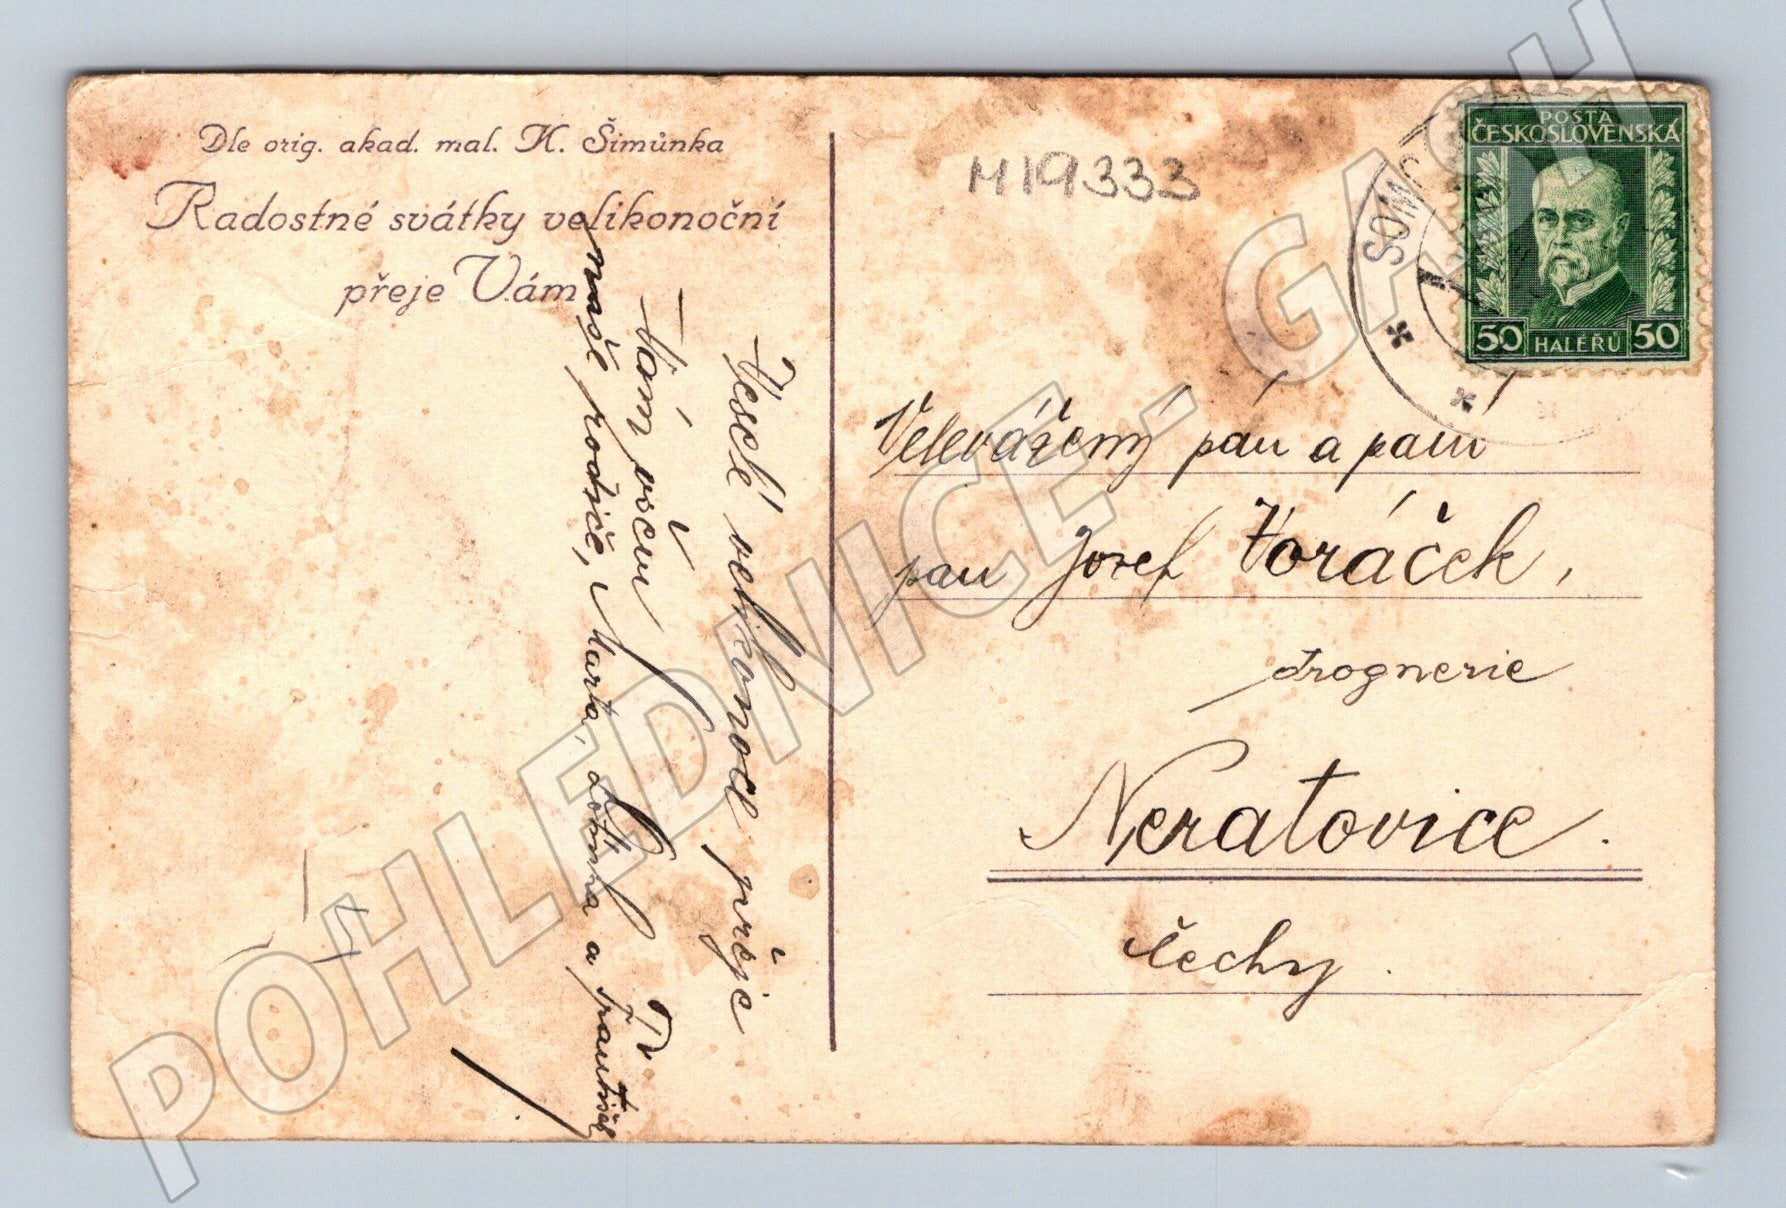 Dle orig. akad. mal. K. Šimůnka
Radostné svátky velikonoční
přeje Vám
Veselé velikonoce přeje
Vám všem
naše rodiče, Marta, a Frantíšek
M19333
POŠTA
ČESKOSLOVENSKÁ
50 HALÉŘŮ 50
Velevážený pán a paní
pan Josef Voráček,
drognerie
Neratovice.
Čechy.
POHLEDNICE - GASH